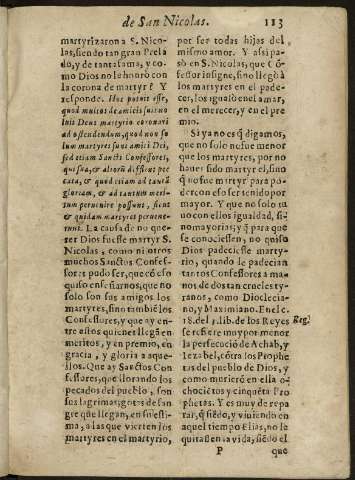 de San Nicolas.
113
martyrizaron a S. Nico-
las, siendo tan gran Prela
do, y de tanta fama, y co-
mo Dios no le honrò con
la corona de martyr? Y
responde. Hoc potuit esse,
quod multos de amicis suis no
luit Deus martyrio coronari
ad ostendendum, quod non so
lum martyres sunt amici Dei,
sed etiam Sancti Confessores,
qui sua, & aliorũ difflent pec
cata, & quod etiam ad tantã
gloriam, & ad tantum meri-
tum peruenire possunt, sicut
& quidam martyres peruene-
runt. La causa de no que-
rer Dios fuesse martyr S.
Nicolas, como ni otros
muchos Sanctos Confes-
sores pudo ser, que cõ esso
quiso enseñarnos, que no
solo son sus amigos los
martyres, sino tambiẽ los
Confessores, y que ay en-
tre estos quien es llegã en
meritos, y en premio, en
gracia, y gloria a aque-
llos. Que ay Sanctos Con
fessores, que llorando los
pecados del pueblo, son
sus lagrimas, gotas de san-
gre que llegan, en su esti-
ma, a las que vierten los
martyres en el martyrio,
por ser todas hijas del
mismo amor. Y assi pa-
sò en S. Nicolas, que Cõ-
fessor insigne, sino llegò à
los martyres en el pade-
cer, los igualò en el amar,
en el merecer, y en el pre
mio.
Si ya no es q̃ digamos,
que no solo no fue menor
que los martyres, por no
hauer sido martyr el, sino
q̃ no fue martyr para pa-
decer con ello ser tenido por
mayor. Y que no solo tu
uo con ellos igualdad, si-
no mayorias; y q̃ para que
se conociessen, no quiso
Dios padeciesse marty-
rio, quando le padecian
tantos Confessores a ma-
nos de dos tan crueles ty-
ranos, como Diocleciа-
no, y Maximiano. En el c.
18. del 3. lib. de los Reyes
Reg.
se refiere muy por menor
la persecuciõ de Achab, y
Iezabel, cõtra los Prophe
tas del pueblo de Dios, y
como muriero en ella o-
chocietos y cinquẽta Pro
phetas. Y es muy de repa
rar, q̃ siẽdo, y viuiendo en
aquel tiempo Elias, no le
quitassen la vida, siẽdo el
P
que